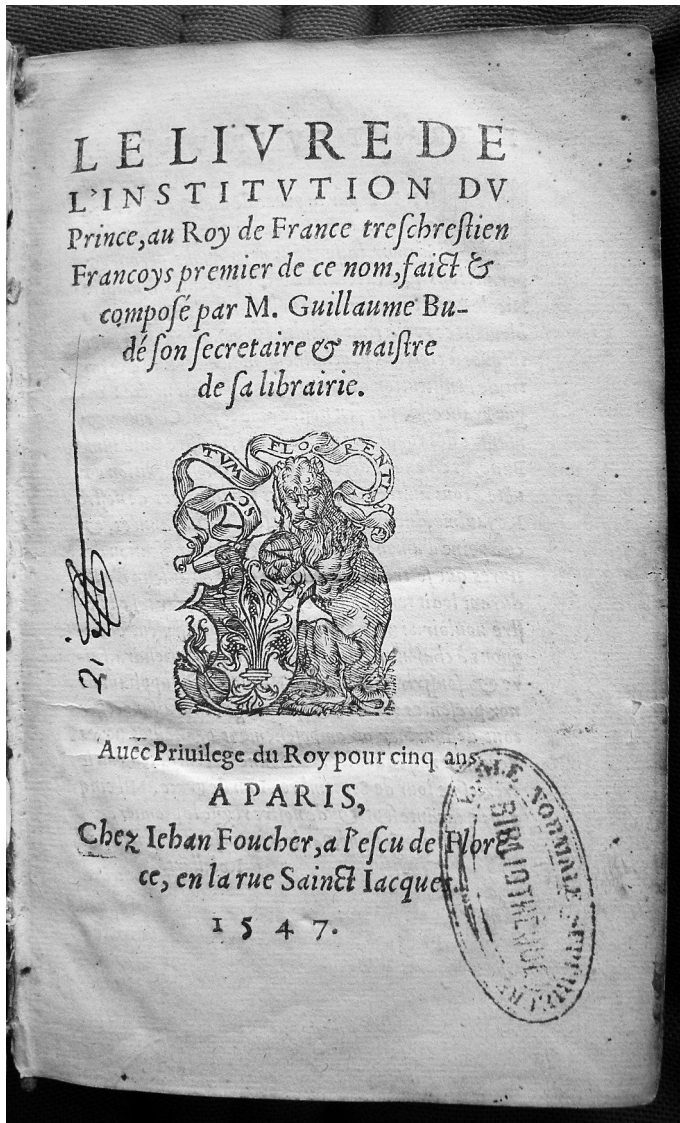 LE LIVRE DE
L'INSTITVTION DV
Prince, au Roy de France treſchreſtien
Francoys premier de ce nom, faict &
compoſé par M. Guillaume Bu-
dé ſon ſecretaire & maiſtre
de ſa librairie.
SCV
TVM
FLO
RENTI
Auec Priuilege du Roy pour cinq ans.
A PARIS,
Chez Iehan Foucher, a l'eſcu de Floren
ce, en la rue Sainct Iacques.
1547.
NORMALE
BIBLIOTHÈQUE